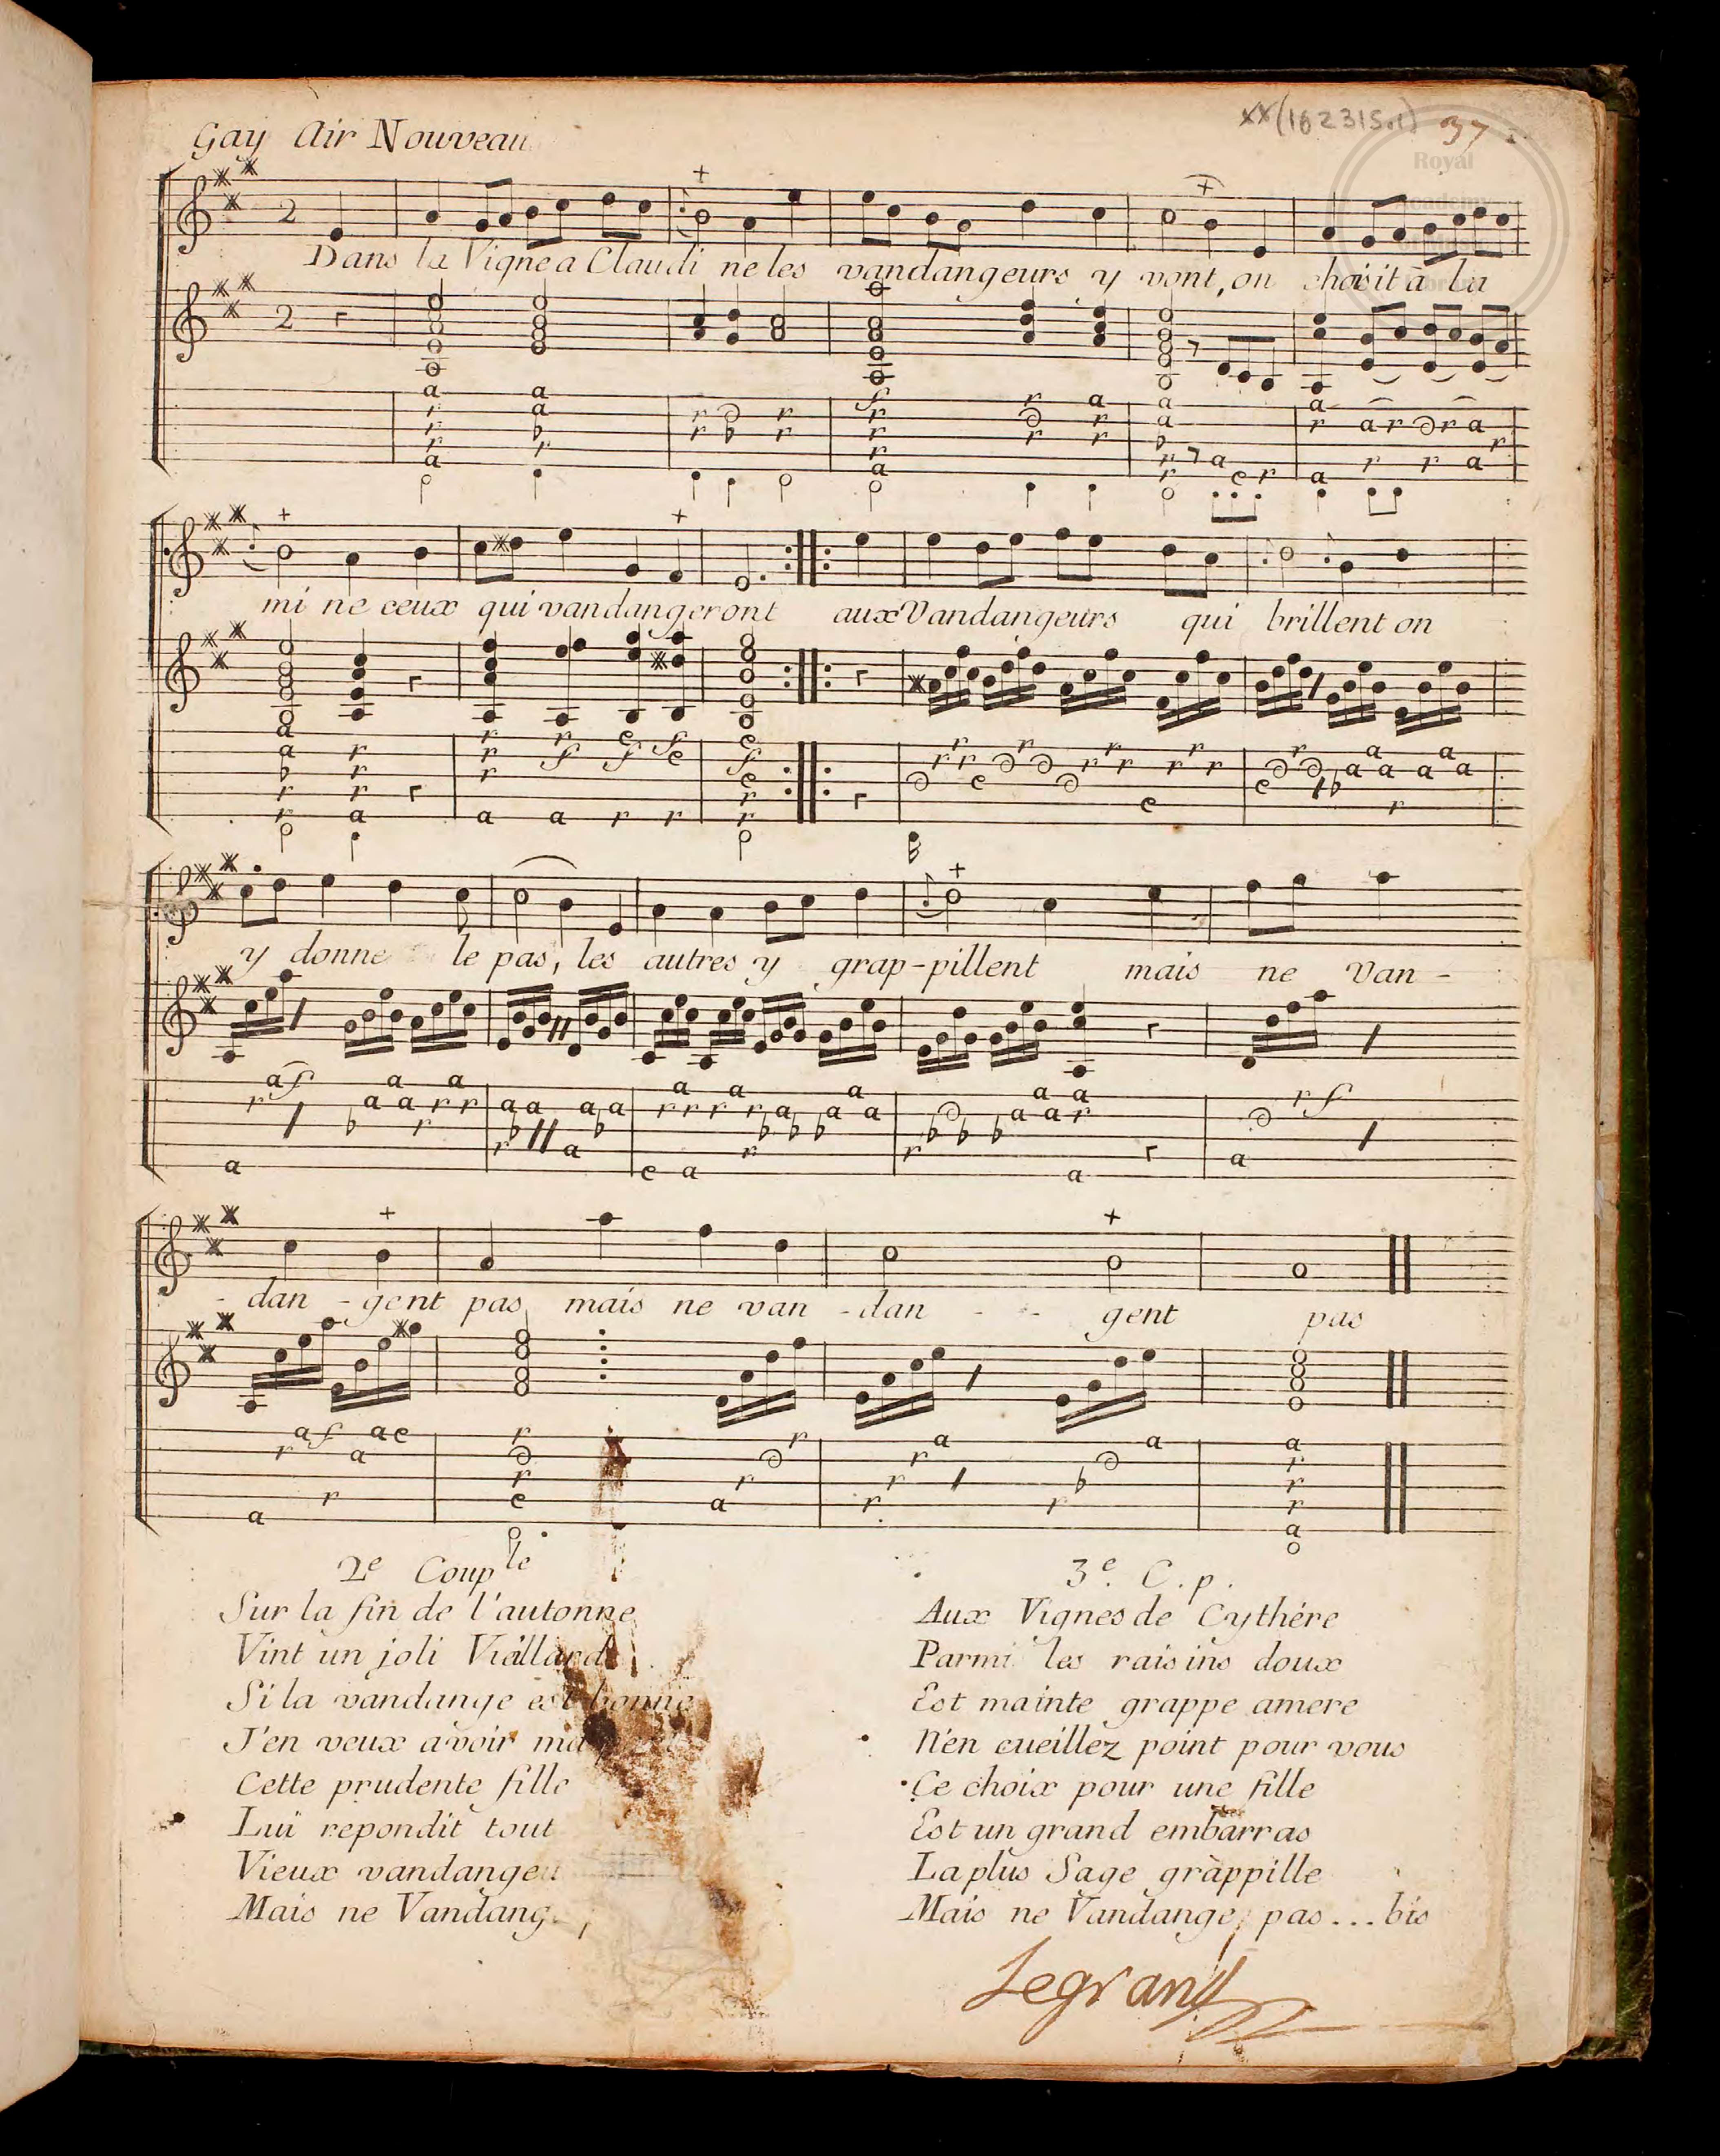 xx(162315.1) 37
Royal
Academy
of Music
Library
Gay Air Nouveau
Dans la Vigne a Claudi ne les vandangeurs y vont, on choisit a la
mi ne ceux qui vandangeront aux Vandangeurs qui brillent on
y donne le pas, les autres y grap-pillent mais ne van-
-dan-gent pas mais ne van-dan-- gent pas
2e Couple
Sur la fin de l'autonne
Vint un joli Vieillard
Si la vandange est bonne
J'en veux avoir
Cette prudente fille
Lui repondit tout
Vieux
Mais ne
3e. C.p.
Aux Vignes de Cythére
Parmi les raisins doux
Est mainte grappe amere
N'en cueillez point pour vous
Ce choix pour une fille
Est un grand embarras
La plus Sage grappille
Mais ne Vandange pas...bis
Legrand